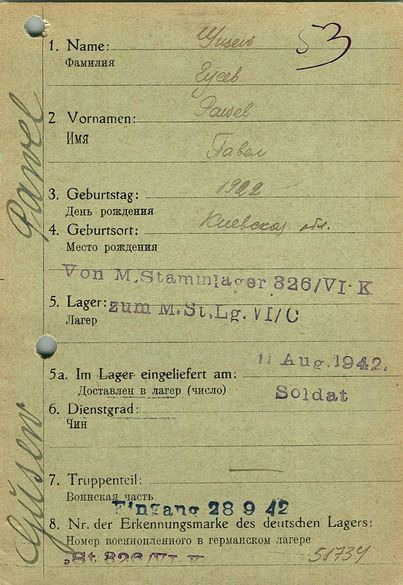 1. Name: Gusew
Фамилия
Гусев
53
2. Vornamen: Pawel
Имя
Павел
3. Geburtstag: 1922
День рождения
4. Geburtsort: Киевская обл.
Место рождения
Von M.Stammlager 326/VI-K
5. Lager: zum M.St.Lg.VI/C
Лагер
11 Aug. 1942.
5a. Im Lager eingeliefert am:
Доставлен в лагер (число)
Soldat
6. Dienstgrad:
Чин
7. Truppenteil: —
Воинская часть
Eingang 28 9 42
8. Nr. der Erkennungsmarke des deutschen Lagers:
Номер военнопленного в германском лагере
St 326/VI K
51734
Gusew Pawel